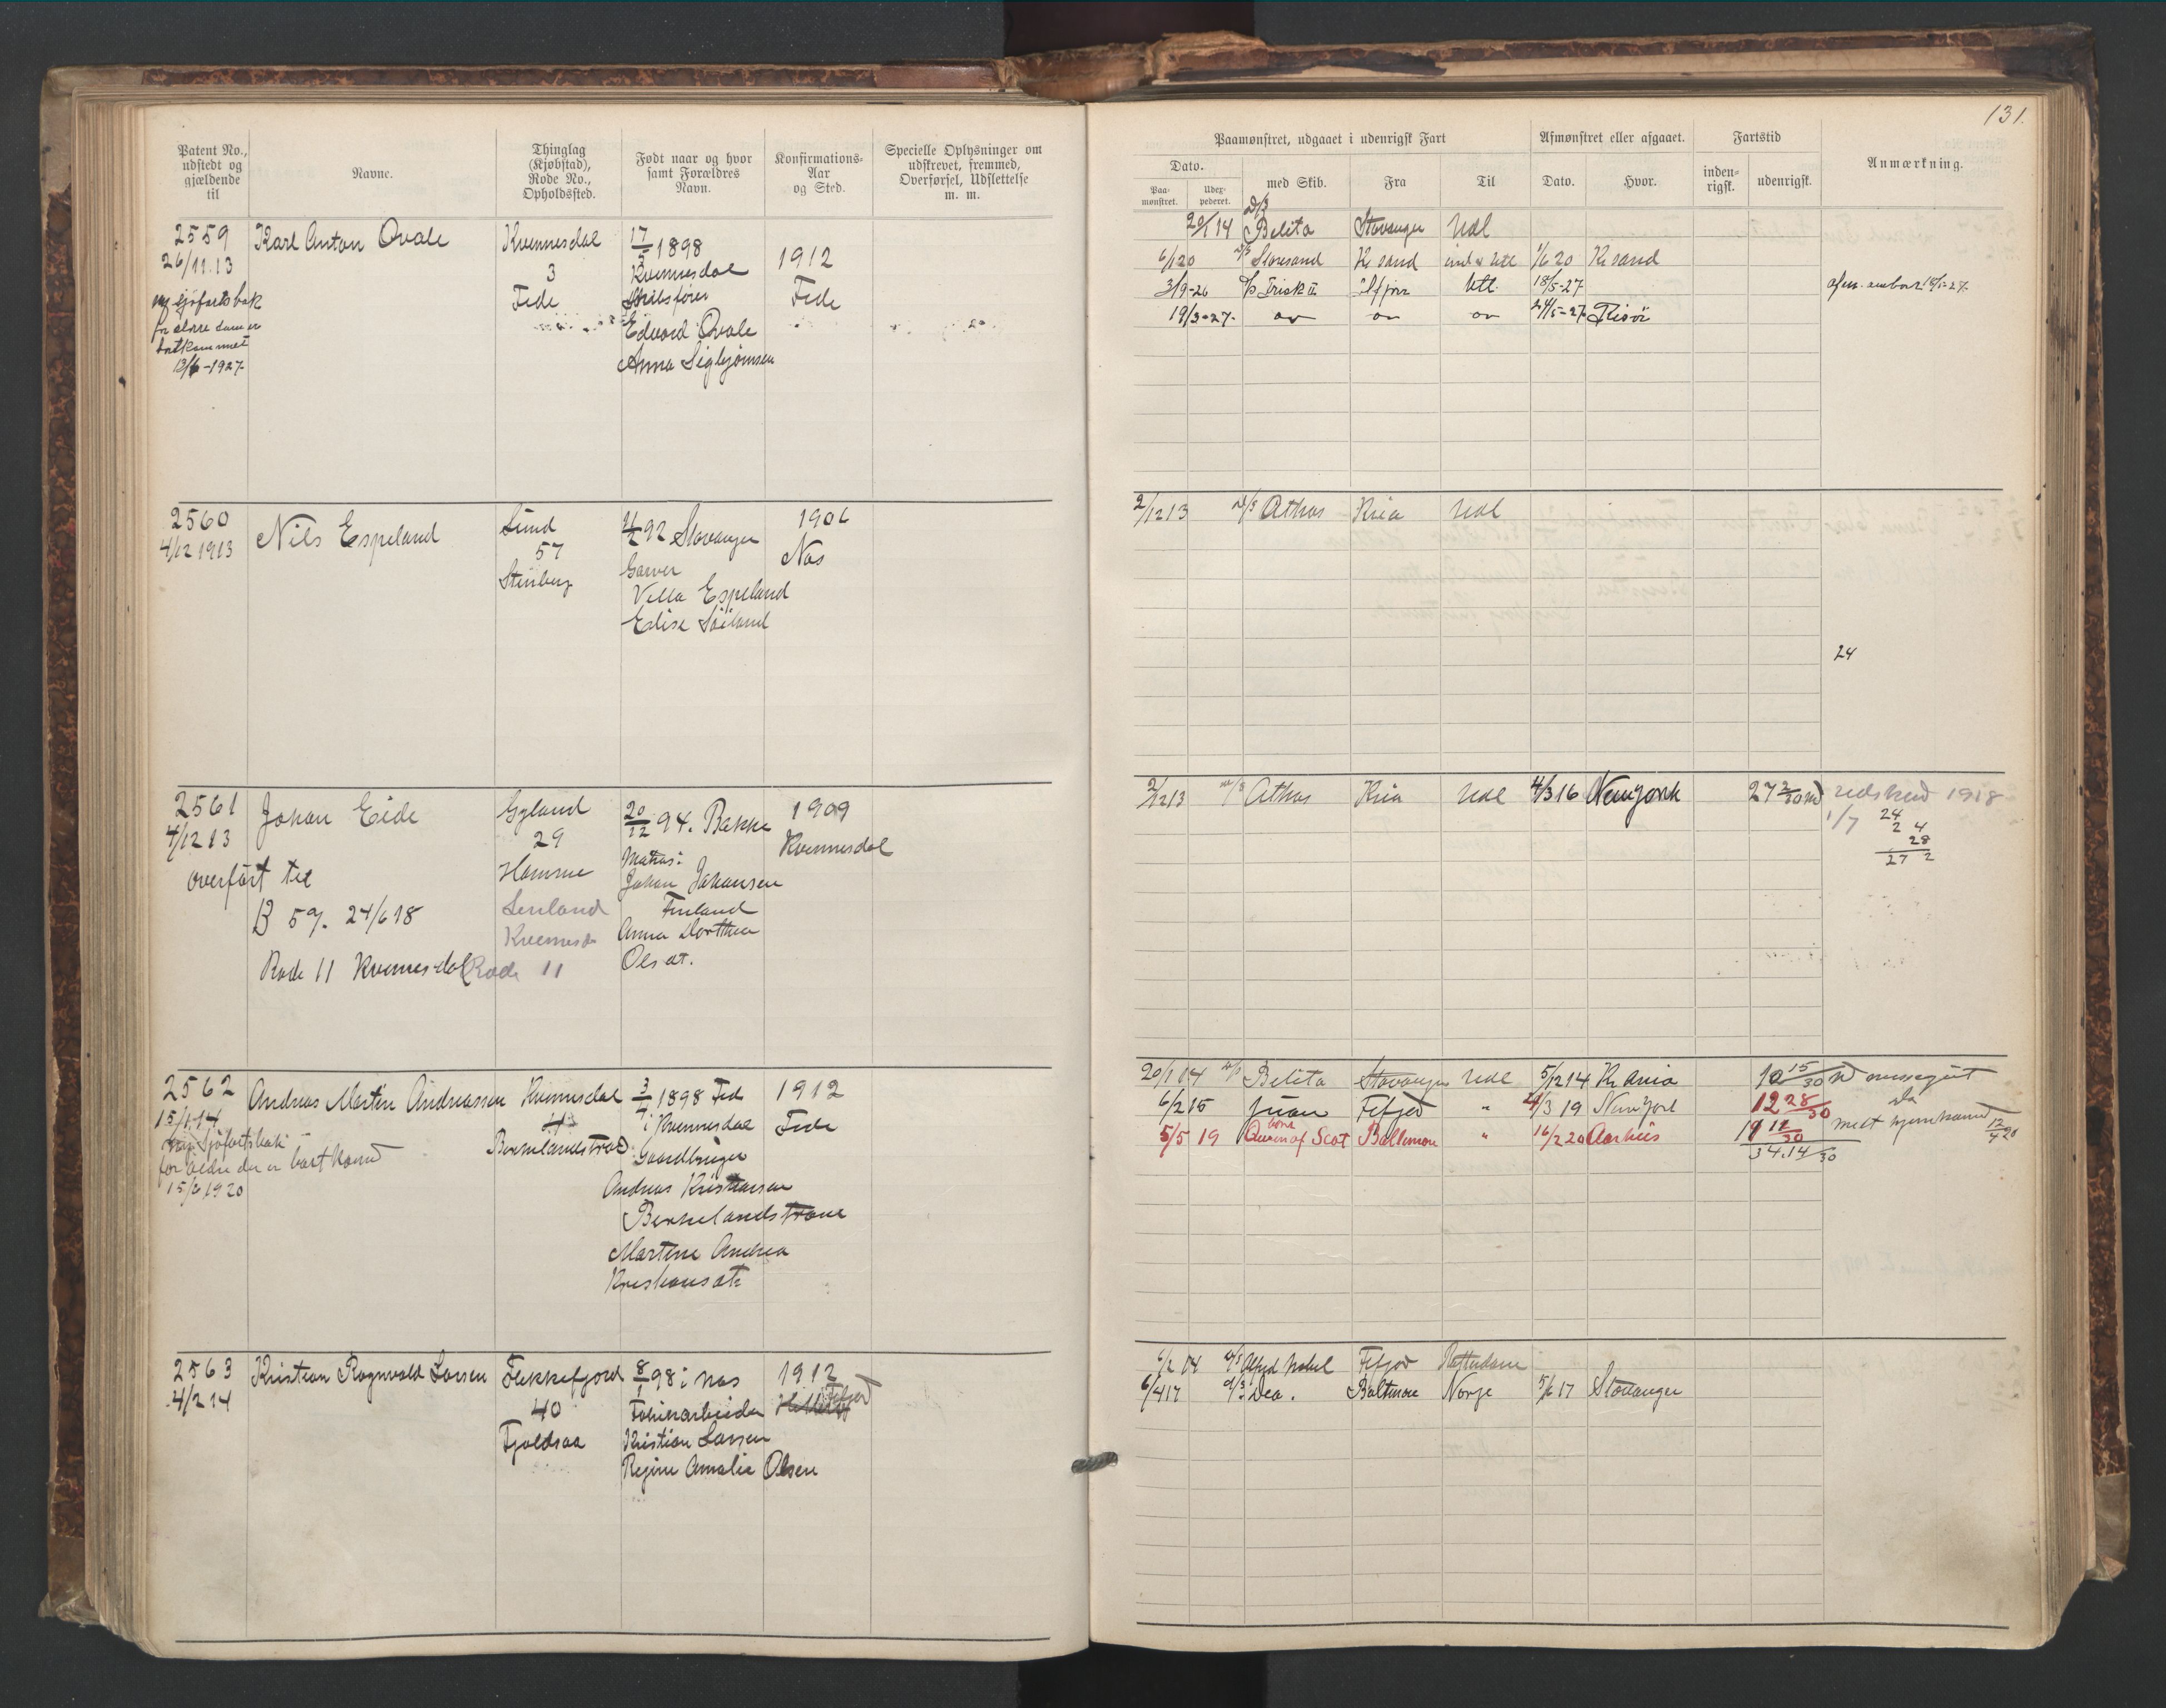 131.
Patent No., udstedt og gjældende til
Navne.
Thinglag (Kjøbstad), Rode No., Opholdssted.
Født naar og hvor samt Forældres Navn.
Konfirmations-Aar og Sted.
Specielle Oplysninger om udskrevet, fremmed, Overførsel, Udslettelse m. m.
Paamønstret, udgaaet i udenrigsk Fart
Afmønstret eller afgaaet.
Fartstid
Anmærkning.
Dato.
Paa-mønstret.
Udex-pederet.
med Skib.
Fra
Til
Dato.
Hvor.
inden-rigsk.
udenrigsk.
2559
26/11.13
ny sjøfartsbok
for ældre som er
bortkommet
13/6-1927
Karl Anton Ovale
Kvinnesdal
3
Fede
17/5 1898
Kvinnesdal
Skibsfører
Edvard Ovale
Anna Sigbjørnsen
1912
Fede
20/1 14 D/S Belita Stavanger Udl
6/1 20 D/S Storesand Kr sand 1/6 20 Kr sand
3/9-26 Utl. 18/5-27
19/3-27. 24/5-27 Risør
2560
4/12 1913
Nils Espeland
Lund
57
Steinberg
4/2 92 Stavanger
Garver
Villa Espeland
Elise Søiland
1906
Nas
2/12 13 D/S Athos Kria Udl
24
2561
4/12 13
overført til
B 59. 24/6 18
Rode 11 Kvinesdal
Johan Eide
Gyland
29
Hamme
Lenland
Kvinesd
Rode 11
20/12 94. Bakke
Matros:
Johan Johansen
Finland
Anna Dorthea
Olsdt.
1909
Kvinnesdal
2/12 13 D/S Athos Kria Udl 4/3 16 New York 27 2/30 M udskrevet 1918
1/7
24
2 4
28
27 2
2562
15/1.14
ny Sjøfartsbok
for ældre der er bortkomd
15/6 1920
Andreas Martin Andreassen
Kvinnesdal
43
Berkelandstrae
3/7 1898 Fed
i Kvinnesdal
Gaardbruger
Andreas Kristiansen
Berkelandstrane
Martine Andrea
Kristiansdtr
1912
Fede
20/1 14 D/S Belita Stavanger Udl 5/12 14 Kr ania 10 15/30 M
6/2 15 Juan Fefjord " 21/3 19 New York 12 28/30 Da
5/5 19 Queen of Scot Baltimore " 16/2 20 Aarhus 11 11/30 melt hjemkomd 12/4 20
34.14/30
2563
4/2 14
Kristian Ragnvald Larsen
Flekkefjord
40
Fjeldsaa
8/1 98 i Nas
Fabrikarbeider
Kristian Larsen
Regine Amalie Olsen
1912
Fefjord
6/2 14 D/S Alfred Nobel Fefjord Rotterdam
6/4 17 D/S Dea. Baltimore Norge 5/6 17 Stavanger